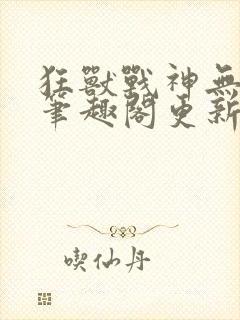 狂獸戰神無
筆趣閣更新
喫仙丹